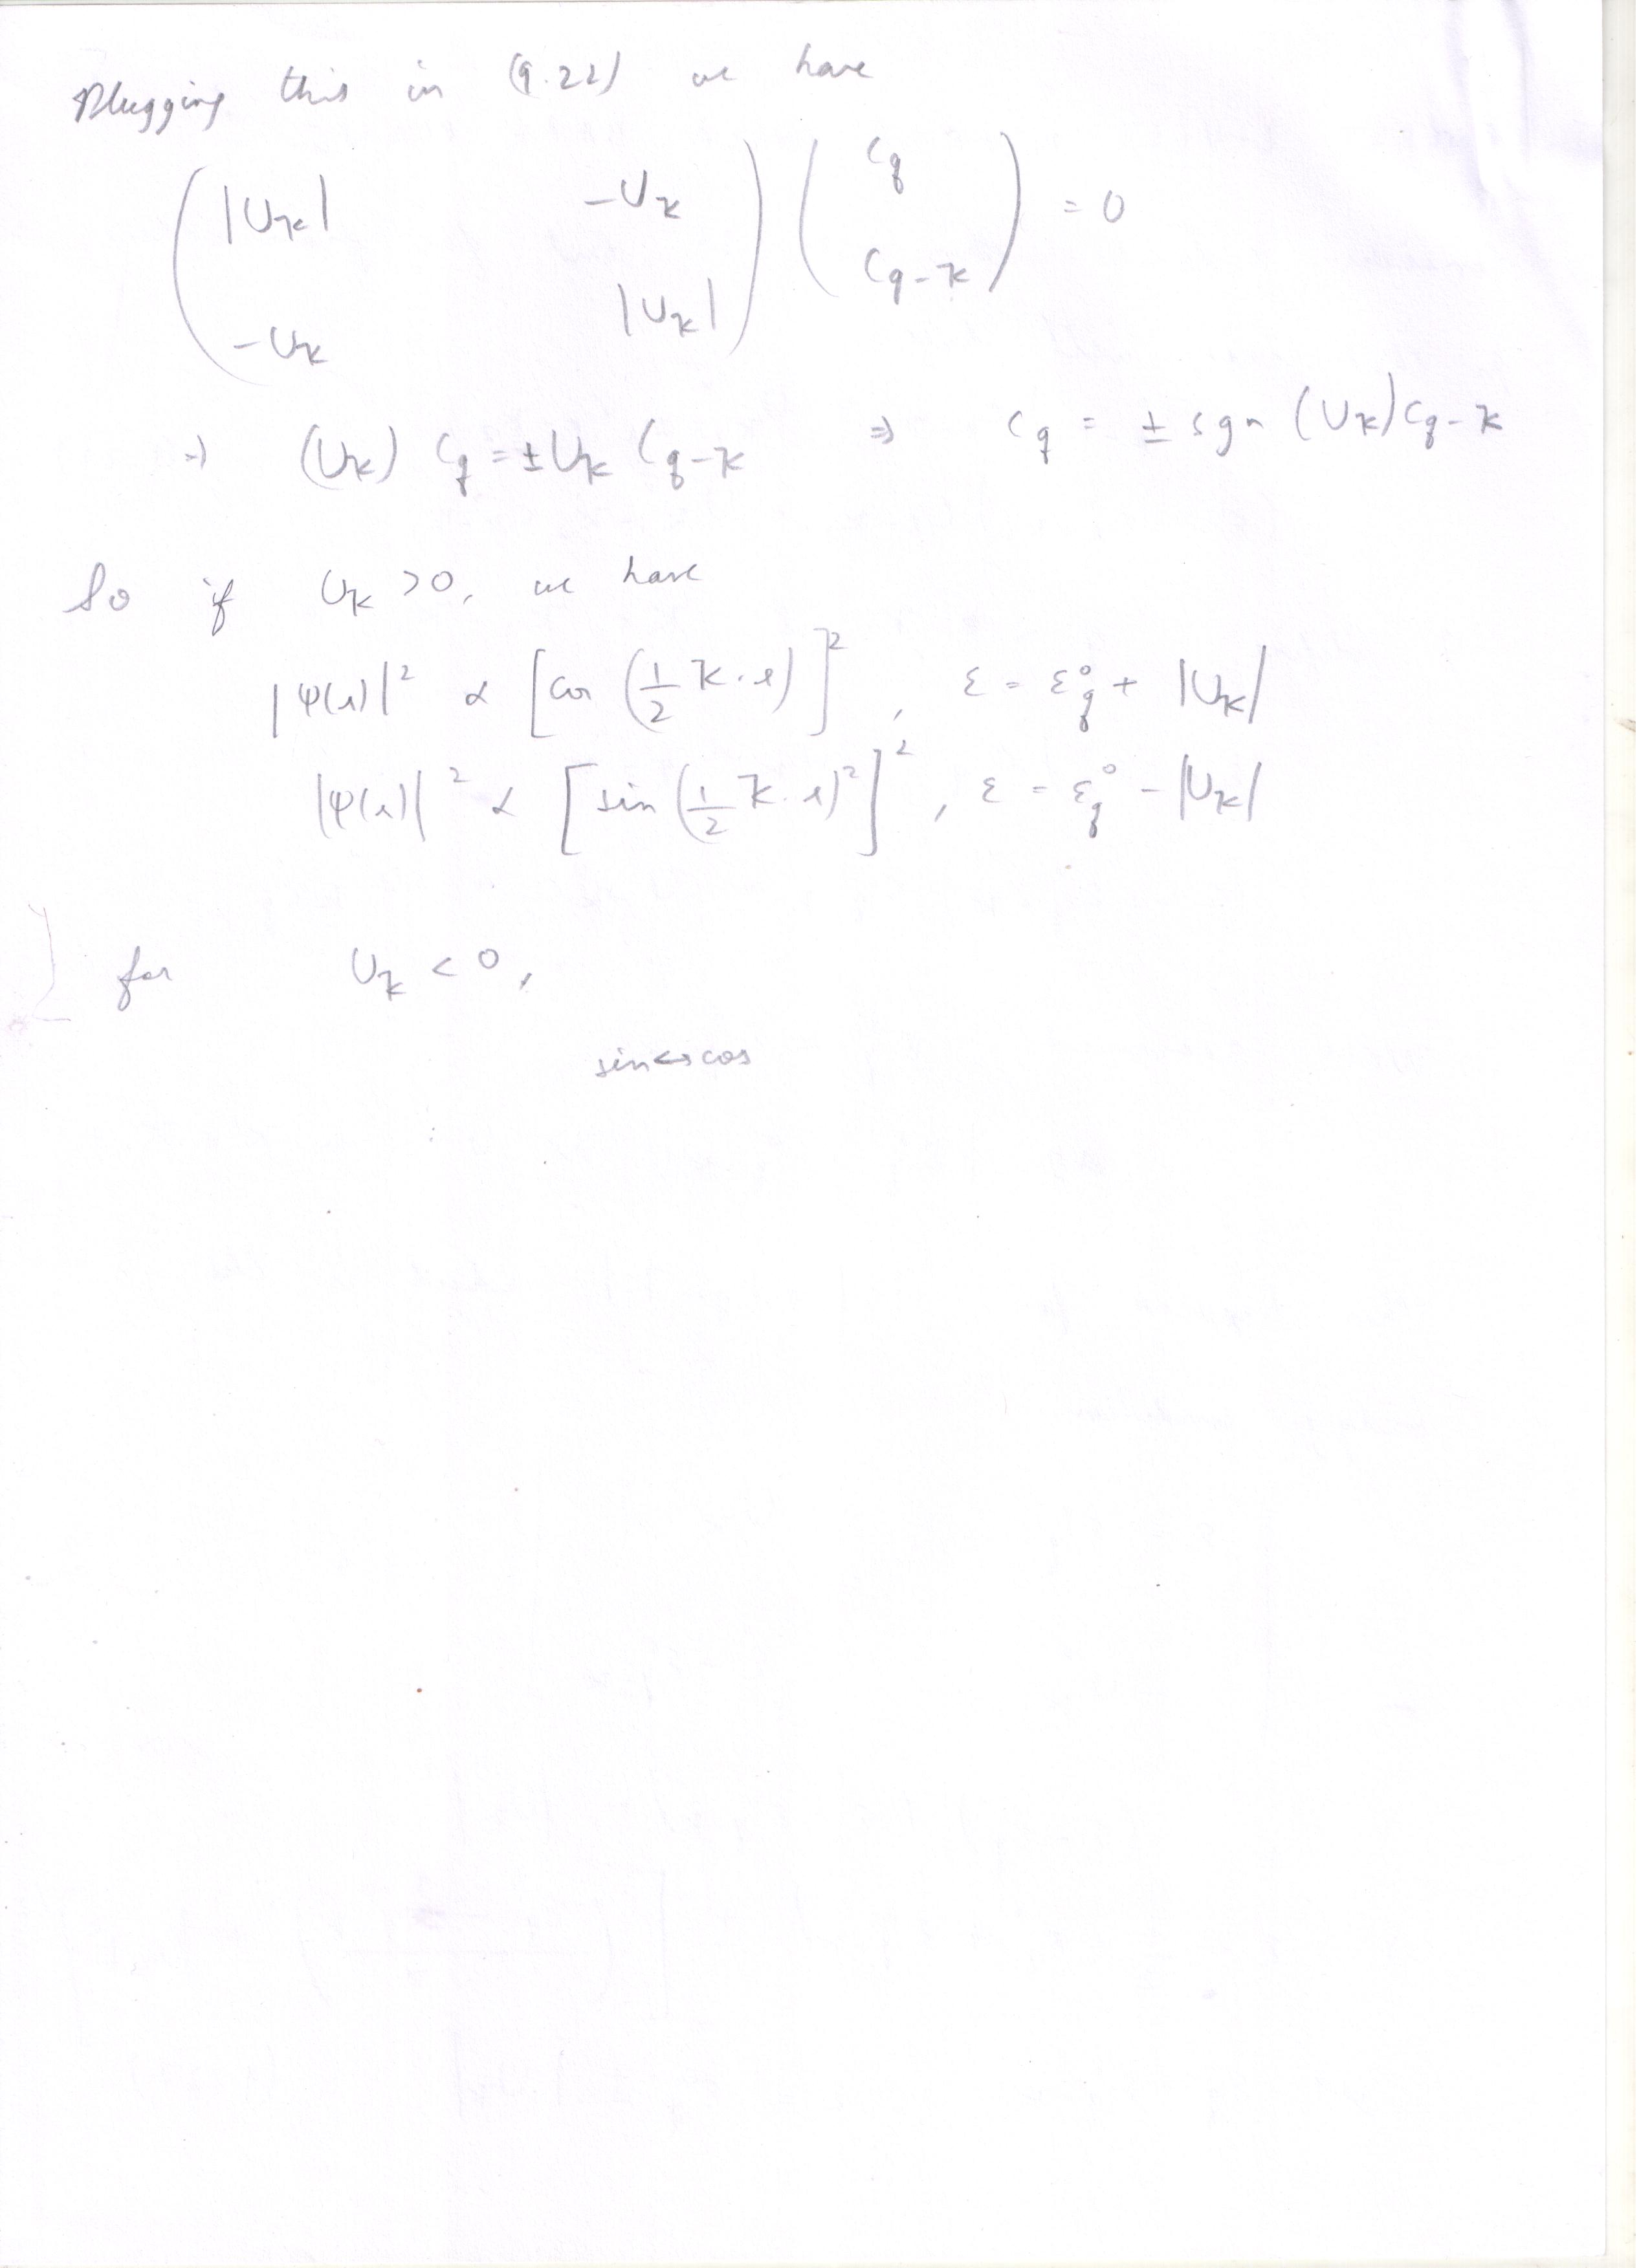 Plugging this in (9.22) we have
( |U_K|   -U_K ) ( c_q ) = 0
( -U_K   |U_K| ) ( c_{q-K} )
⇒ (U_K) c_q = ± U_K c_{q-K} ⇒ c_q = ± sgn (U_K) c_{q-K}
So if U_K > 0, we have
|ψ(r)|² ∝ [cos (1/2 K·r)]², ε = ε_q° + |U_K|
|ψ(r)|² ∝ [sin (1/2 K·r)²]², ε = ε_q° - |U_K|
for U_K < 0,
sin↔cos